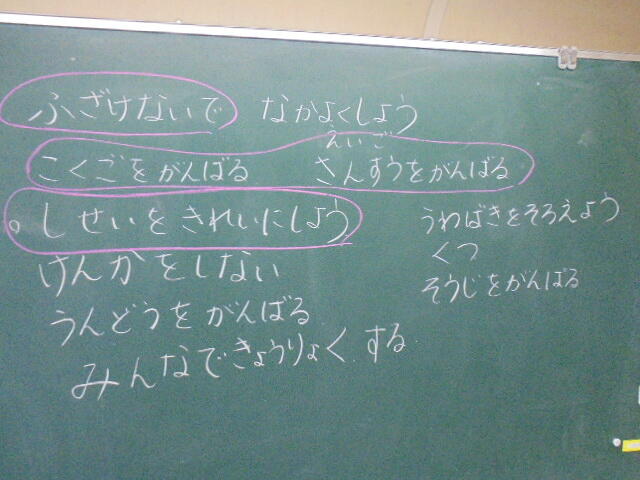 ふざけないで なかよくしよう
えいご
こくごをがんばる さんすうをがんばる
しせいをきれいにしよう
けんかをしない
うんどうをがんばる
みんなできょうりょくする
うわばきをそろえよう
くつ
そうじをがんばる